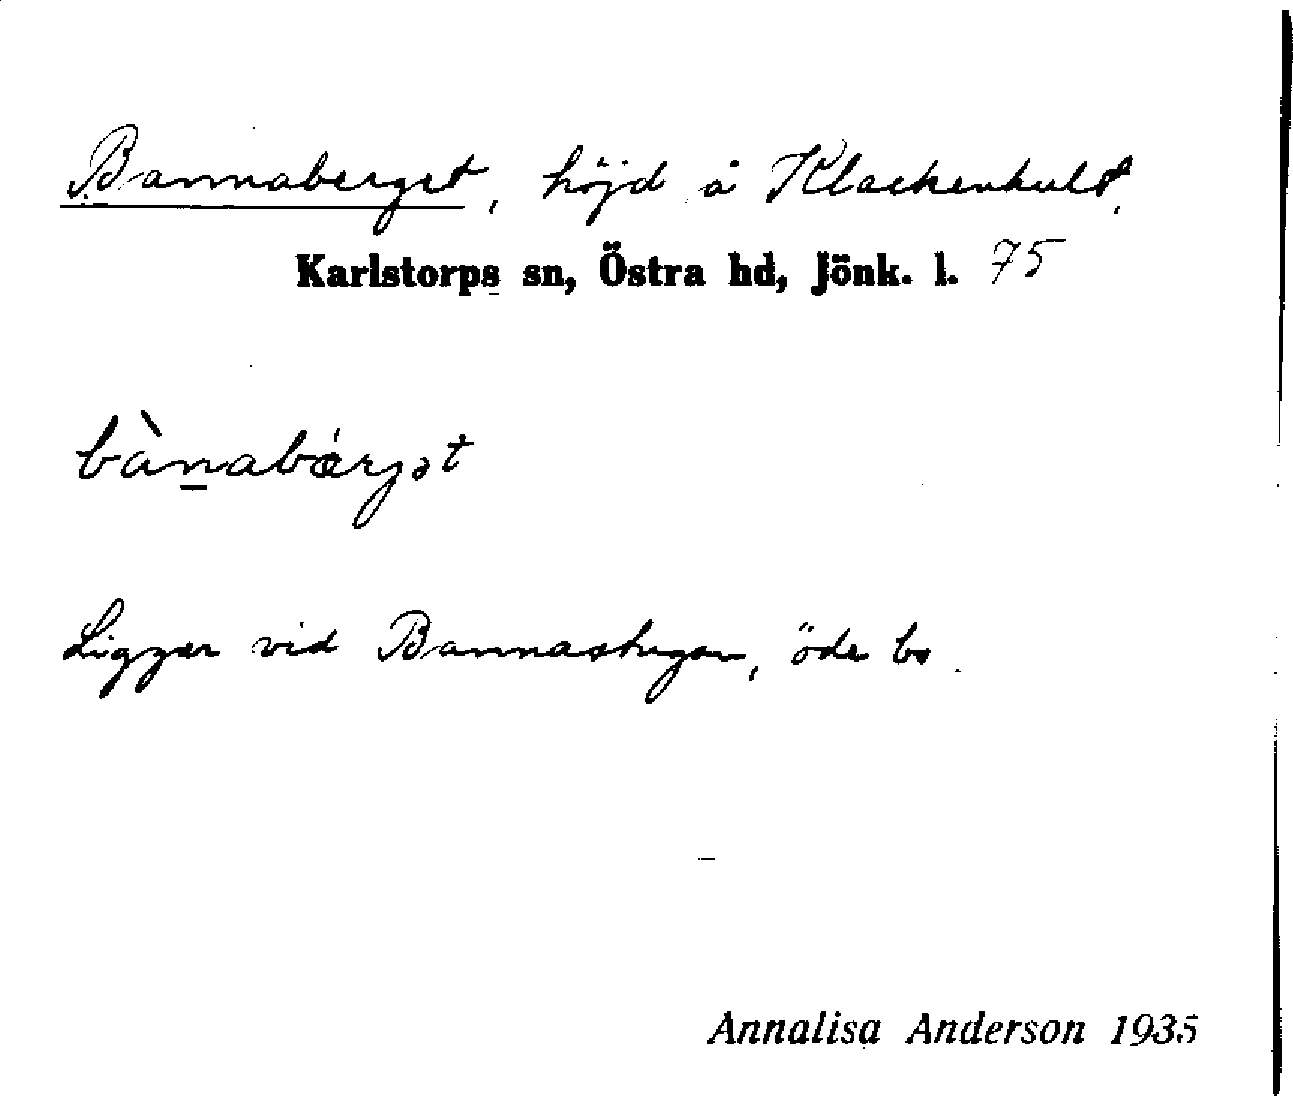 Bannaberget, höjd å Klackenhult,
Karlstorps sn, Östra hd, Jönk. l. 75
bànabǽrjət
Ligger vid Bannastugan, öde bs.
Annalisa Anderson 1935